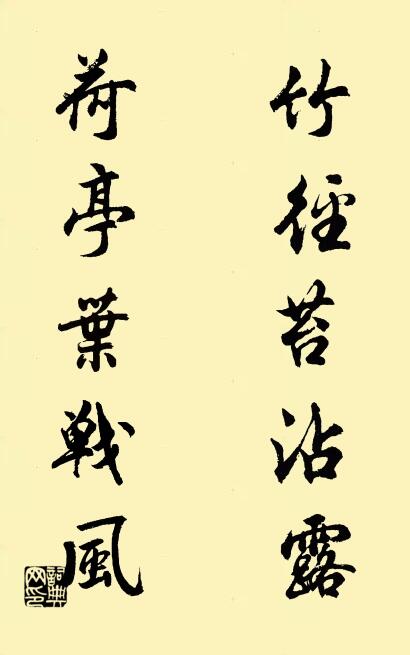 竹徑苔沾露
荷亭葉戰風